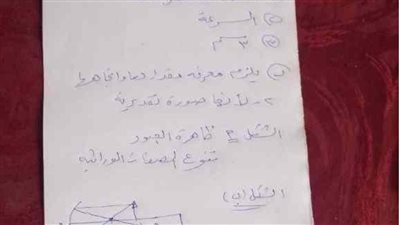 السرعة
٣ سم
يلزم معرفة مقدارها واتجاهها
٢ - لأنها صورة تقديرية
الشكل ج ظاهرة العبور
تنوع الصفات الوراثية
الشكل (ب)